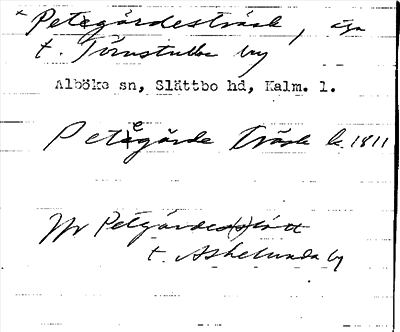 * Petegärdesträsk, äga
t. Törnstubbe by
Alböke sn, Slättbo hd, Kalm. l.
Petegärde träsk k. 1811
Jfr Petgärde(s)slätt
t. Askelunda by